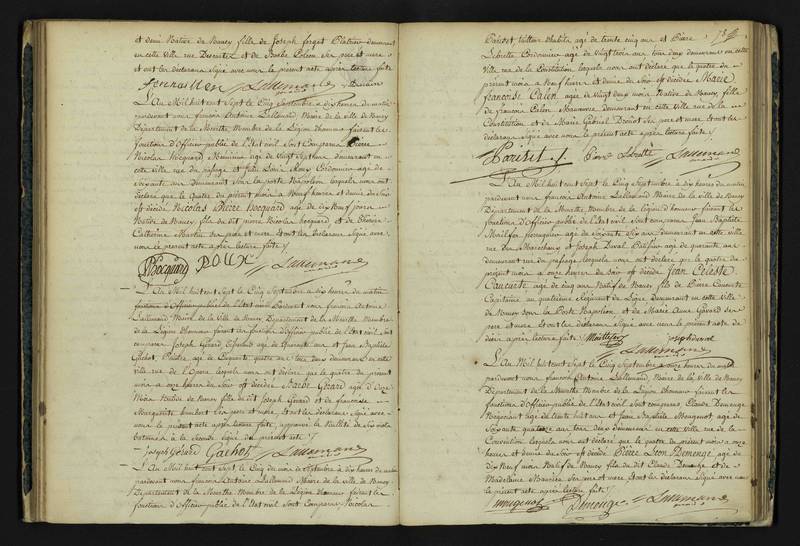 et demi Native de Nancy fille de Joseph forget Platrier demeurant
en cette ville rue et de Poleon Ses pere et mere
et ont les declarans Signé avec nous le présent acte après lecture faite
Lallemand
L'An Mil huit cent Sept le Cinq Septembre a dix heures du matin
pardevant nous francois Antoine Lallemand Maire de la ville de Nancy
Département de la Meurthe Membre de la Légion d'honneur faisant les
fonctions d'Officier public de l'état civil Sont Comparus Pierre
Nicolas Hocquard agé de Vingt Sept ans demeurant en
cette ville rue du passage et Roux Cordonnier agé de
Soixante ans demeurant Sur la porte Napoleon lesquels nous ont
déclaré que le Quatre du présent mois a Neuf heures et demie du Soir
est décédé Nicolas Pierre Hocquard agé de dix Neuf jours
Natif de Nancy fils du dit pierre Nicolas hocquard et de
Catherine Martin Ses pere et mere, et ont les declarans Signé avec
nous le présent acte après lecture faite
PNHocquard ROUX Lallemand
L'An Mil huit cent Sept le Cinq Septembre a dix heures du matin
fonctions d'Officier public de l'état civil Pardevant nous francois Antoine
Lallemand Maire de la Ville de Nancy Département de la Meurthe Membre
de la Légion d'honneur faisant les fonctions d'Officier public de l'état civil Sont
comparus Joseph Gérard agé de Quarante ans et Jean Baptiste
Gachot Platrier agé de Cinquante quatre ans tous deux demeurant en cette
ville rue de l'Opera lesquels nous ont déclaré que le quatre du présent
mois a onze heures du est décédée Barbe Gérard agée d'Onze
Mois Native de Nancy fille du dit Joseph Gérard et de francoise
Marguerite humbert Ses pere et mere, et ont les declarans Signé avec
nous le présent acte après lecture faite, approuvé la Nullité de Six mots
batonnés a la Seconde ligne du présent acte
joseph Gérard Gachot Lallemand
L'An Mil huit cent Sept le Cinq du mois de Septembre a dix heures du matin
pardevant nous francois Antoine Lallemand Maire de la ville de Nancy
Département de la Meurthe Membre de la Légion d'honneur faisant les
fonctions d'Officier public de l'état civil Sont Comparus Nicolas
Parisot, tailleur d'habits agé de trente cinq ans et Pierre
Lebrette Cordonnier agé de Vingt trois ans tous deux demeurans en cette
Ville rue de la Constitution lesquels nous ont déclaré que le quatre du
présent mois a Neuf heures et demie du Soir est décédée Marie
francoise Calen agée de Vingt deux mois Native de Nancy fille
de francois Calen Manoeuvre demeurant en cette ville rue de la
Constitution et de Marie Gabriel Drouot Ses pere et mere et ont les
déclarans Signé avec nous le présent acte après lecture faite
Parisot Lallemand
L'An Mil huit cent Sept le Cinq Septembre a dix heures du matin
pardevant nous francois Antoine Lallemand Maire de la Ville de Nancy
Département de la Meurthe, Membre de la Légion d'honneur faisant les
fonctions d'Officier public de l'Etat civil Sont comparus Jean Baptiste
agé de Soixante dix ans demeurant en cette ville
rue des Marechaux et Joseph Duval agé de quarante ans
demeurant rue du passage lesquels nous ont déclaré que le quatre du
présent mois a onze heures du Soir est décédé Jean Celeste
agé de cinq ans Natif de Nancy fils de Pierre
Capitaine au quatrieme Regiment de Ligne demeurant en cette Ville
de Nancy Sous la Porte Napoleon et de Marie Anne Gavard Ses
pere et mere et ont les declarans Signé avec nous le présent acte de
décès après lecture faite
joseph duval Lallemand
L'An Mil huit cent Sept le Cinq Septembre a onze heures du matin
pardevant nous francois Antoine Lallemand, Maire de la Ville de Nancy
Département de la Meurthe Membre de la Légion d'honneur faisant les
fonctions d'Officier public de l'état civil Sont comparus, Claude Demenge
Négociant agé de trente huit ans et Jean Baptiste Mougenot, agé de
Soixante quatorze ans tous deux demeurans en cette ville rue de la
Constitution lesquels nous ont déclaré que le quatre du présent mois a onze
heures et demie du Soir est décédé Pierre Leon Demenge agé de
dix Neuf mois Natif de Nancy fils du dit Claude Demenge et de
Madelaine Ses pere et mere et ont les declarans Signé avec nous
le présent acte après lecture faite
mougenot Demenge Lallemand